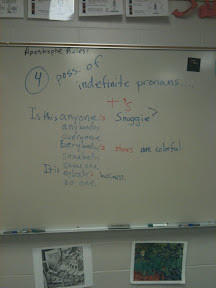 Apostrophe Rules!
4 poss. of
indefinite pronouns...
+'s
Is this anyone's Snuggie?
anybody
everyone
Everybody's shoes are colorful
somebody
someone
It is nobody's business.
no one.